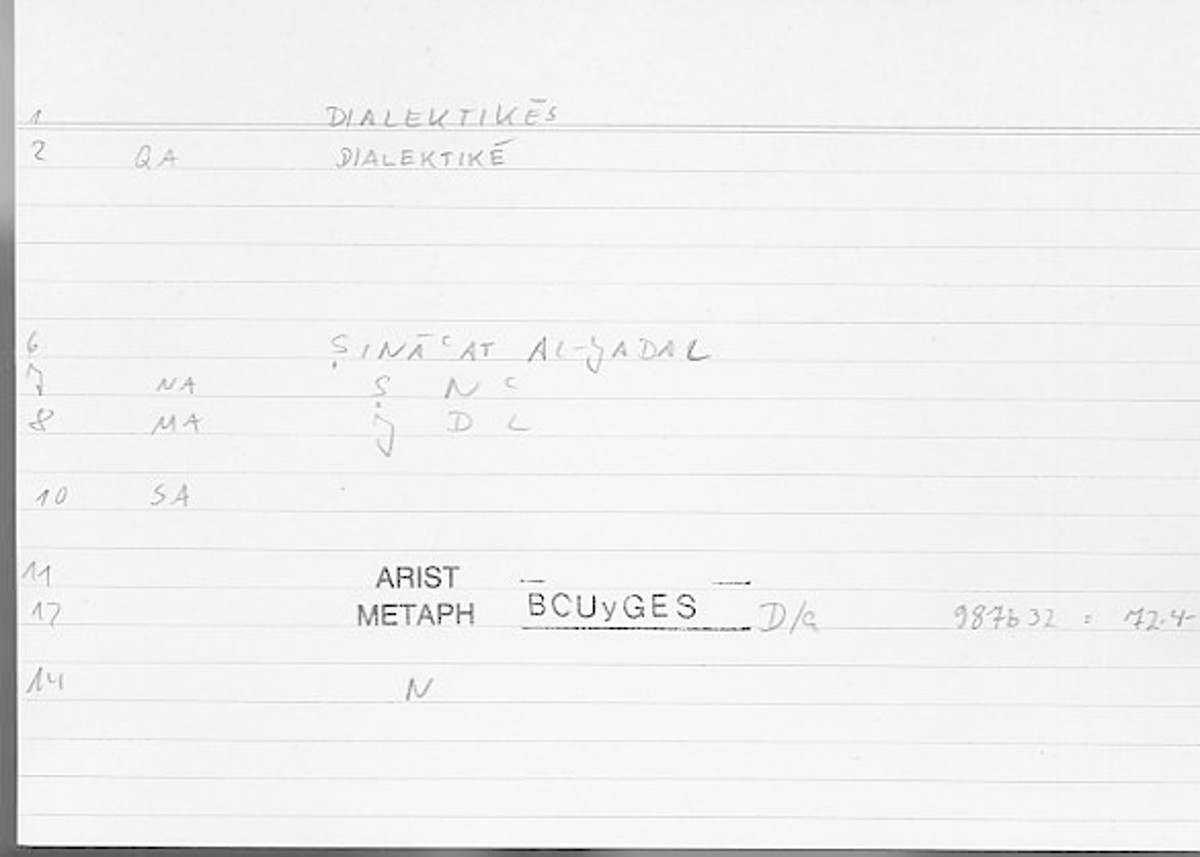 1 DIALEKTIKĒS
2 QA DIALEKTIKĒ
6 ṢINĀʿAT AL-ǦADAL
7 NA Ṣ N ʿ
8 MA Ǧ D L
10 SA
11 ARIST
12 METAPH BCUyGES D/a 987b32 : 72.4-
14 N